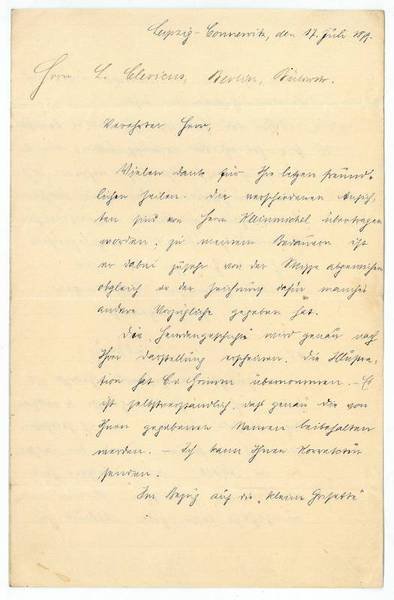 Leipzig-Connewitz, den 17. Juli 189.
Herrn L. Clericus, Berlin,
Verehrter Herr,
Vielen Dank für Ihre letzten freund-
lichen Zeilen. Die verschiedenen Ansich-
ten sind von Herrn Kleinmichel übertragen
worden; zu meinem Bedauern ist
er dabei zu sehr von der Skizze abgewichen
obgleich er der Zeichnung dafür manches
andere Vorzügliche gegeben hat.
Die wird genau nach
Ihrer Darstellung erscheinen. Die Illustra-
tion hat übernommen. – Es
ist selbstverständlich, daß genau die von
Ihnen gegebenen Namen beibehalten
werden. – Ich kann Ihnen Korrektur
senden.
In Bezug auf die „kleine